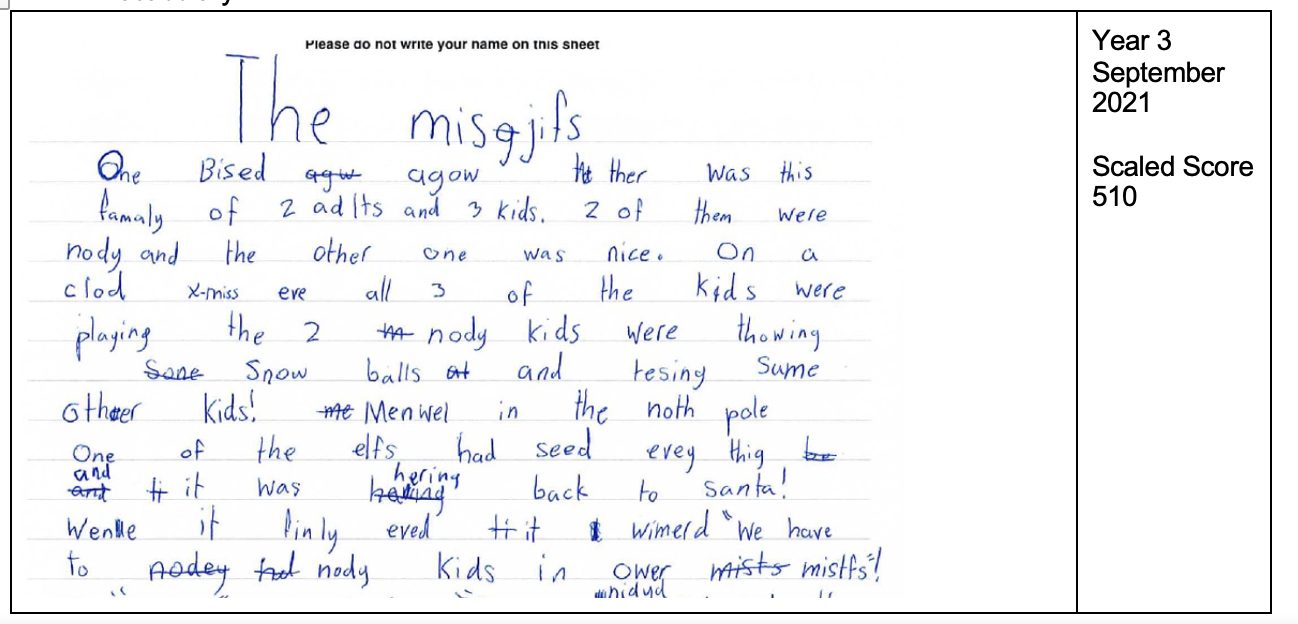 Please do not write your name on this sheet
The misgjifs
One Bised agow ther was this
famaly of 2 adlts and 3 kids. 2 of them were
nody and the other one was nice. On a
clod x-miss eve all 3 of the kids were
playing the 2 nody kids were thowing
snow balls and tesing sume
other kids! Menwel in the noth pole
One of the elfs had seed evey thig
and it was hering back to santa!
Wenlle it finly eved it wimerd "We have
to nody kids in ower mistfs"!
Year 3
September
2021
Scaled Score
510